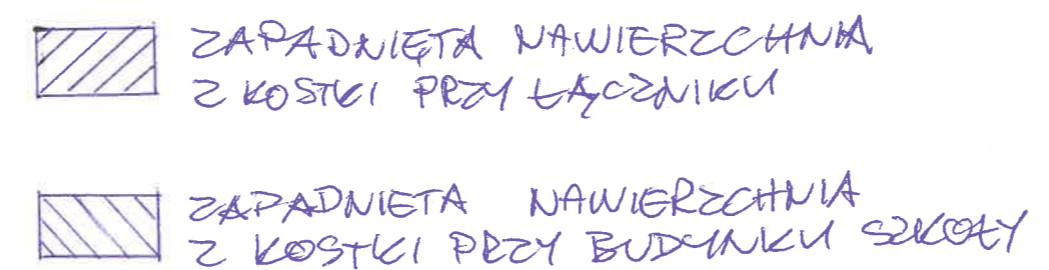 ZAPADNIĘTA NAWIERZCHNIA
Z KOSTKI PRZY ŁĄCZNIKU
ZAPADNIETA NAWIERZCHNIA
Z KOSTKI PRZY BUDYNKU SZKOŁY